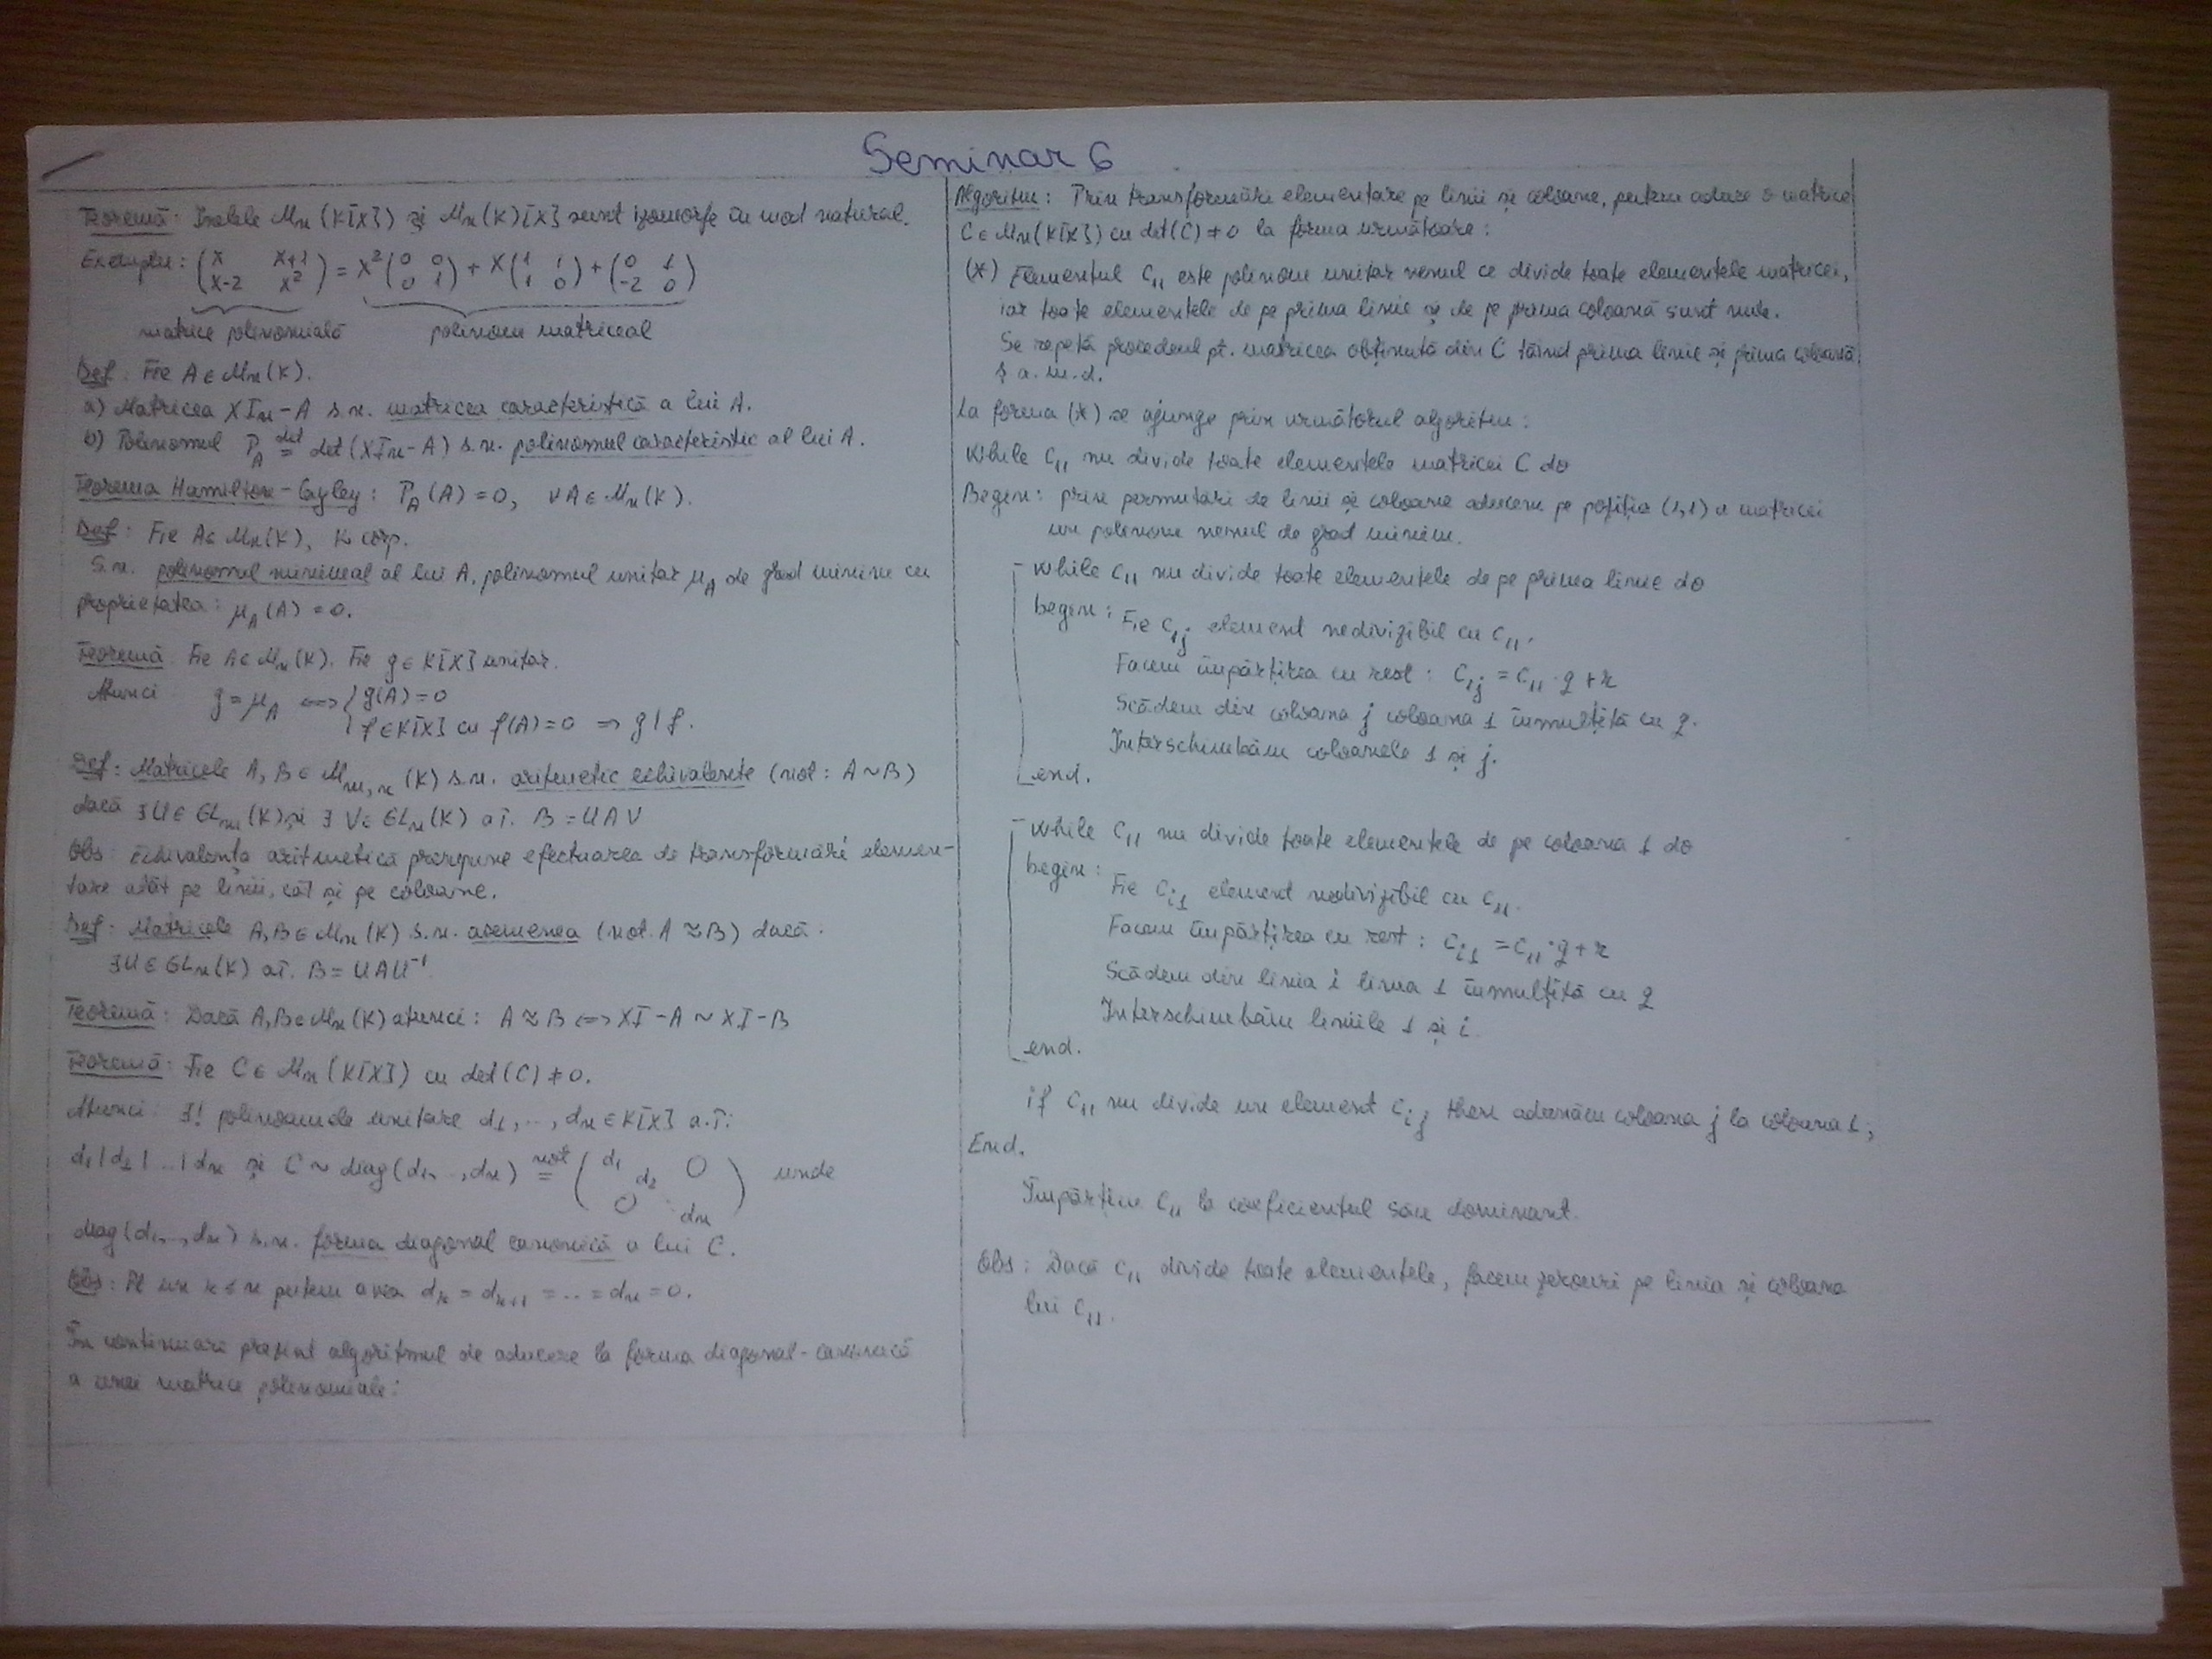 Seminar 6
Teoremă: Inelele Mn(K[X]) și Mn(K)[X] sunt izomorfe în mod natural.
Exemplu: (x x+1 / x-2 x²) = x²(0 0 / 0 1) + x(1 1 / 1 0) + (0 1 / -2 0)
matrice polinomială polinom matriceal
Def: Fie A∈Mn(K).
a) Matricea XIn-A s.n. matricea caracteristică a lui A.
b) Polinomul P_A def= det(XIn-A) s.n. polinomul caracteristic al lui A.
Teorema Hamilton-Cayley: P_A(A)=0, ∀A∈Mn(K).
Def: Fie A∈Mn(K), K corp.
S.n. polinomul minimal al lui A, polinomul unitar μ_A de grad minim cu
proprietatea: μ_A(A)=0.
Teoremă: Fie A∈Mn(K). Fie g∈K[X] unitar.
Atunci g=μ_A ⟺ { g(A)=0
f∈K[X] cu f(A)=0 ⇒ g|f.
Def: Matricele A, B∈Mm,n(K) s.n. aritmetic echivalente (not: A~B)
dacă ∃U∈GLm(K) și ∃V∈GLn(K) aî. B=UAV
Obs: Echivalența aritmetică presupune efectuarea de transformări elemen-
tare atât pe linii, cât și pe coloane.
Def: Matricele A,B∈Mn(K) s.n. asemenea (not. A≈B) dacă:
∃U∈GLn(K) aî. B=UAU⁻¹.
Teoremă: Dacă A,B∈Mn(K) atunci: A≈B ⟺ XI-A ~ XI-B
Teoremă: Fie C∈Mn(K[X]) cu det(C)≠0.
Atunci: ∃! polinoamele unitare d1,..,dn∈K[X] a.î:
d1|d2|...|dn și C~diag(d1,..,dn) not= (d1 d2 0 / 0 dn) unde
diag(d1,..,dn) s.n. forma diagonal canonică a lui C.
Obs: Pt un r≤n putem avea dr=dr+1=..=dn=0.
În continuare prezint algoritmul de aducere la forma diagonal-canonică
a unei matrice polinomiale:
Algoritm: Prin transformări elementare pe linii și coloane, putem aduce o matrice
C∈Mn(K[X]) cu det(C)≠0 la forma următoare:
(*) Elementul C11 este polinom unitar nenul ce divide toate elementele matricei,
iar toate elementele de pe prima linie și de pe prima coloană sunt nule.
Se repetă procedeul pt. matricea obținută din C tăind prima linie și prima coloană,
ș.a.m.d.
La forma (*) se ajunge prin următorul algoritm:
While C11 nu divide toate elementele matricei C do
Begin: prin permutări de linii și coloane aducem pe poziția (1,1) a matricei
un polinom nenul de grad minim.
while C11 nu divide toate elementele de pe prima linie do
begin: Fie C1j element nedivizibil cu C11.
Facem împărțirea cu rest: C1j = C11·q+r
Scădem din coloana j coloana 1 înmulțită cu q.
Interschimbăm coloanele 1 și j.
end.
while C11 nu divide toate elementele de pe coloana 1 do
begin: Fie Ci1 element nedivizibil cu C11.
Facem împărțirea cu rest: Ci1 = C11·q+r
Scădem din linia i linia 1 înmulțită cu q
Interschimbăm liniile 1 și i.
end.
if C11 nu divide un element Cij then adunăm coloana j la coloana 1;
End.
Împărțim C11 la coeficientul său dominant.
Obs: Dacă C11 divide toate elementele, facem zerouri pe linia și coloana
lui C11.